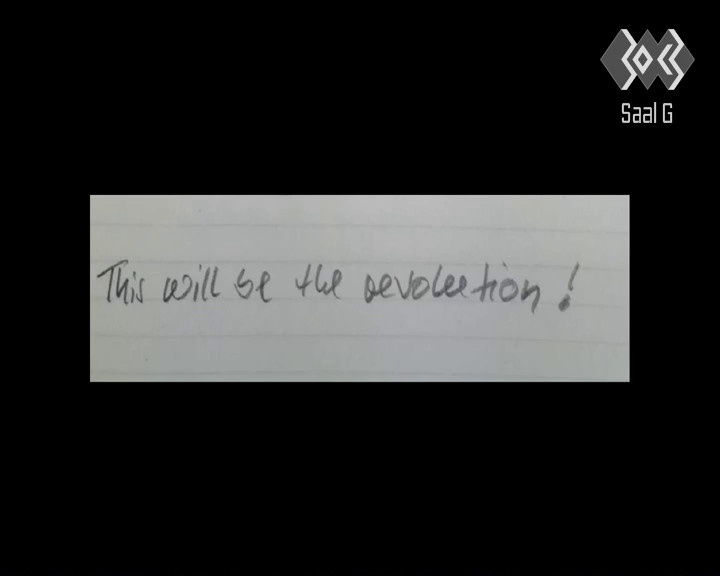 30C3
Saal G
This will be the revolution!